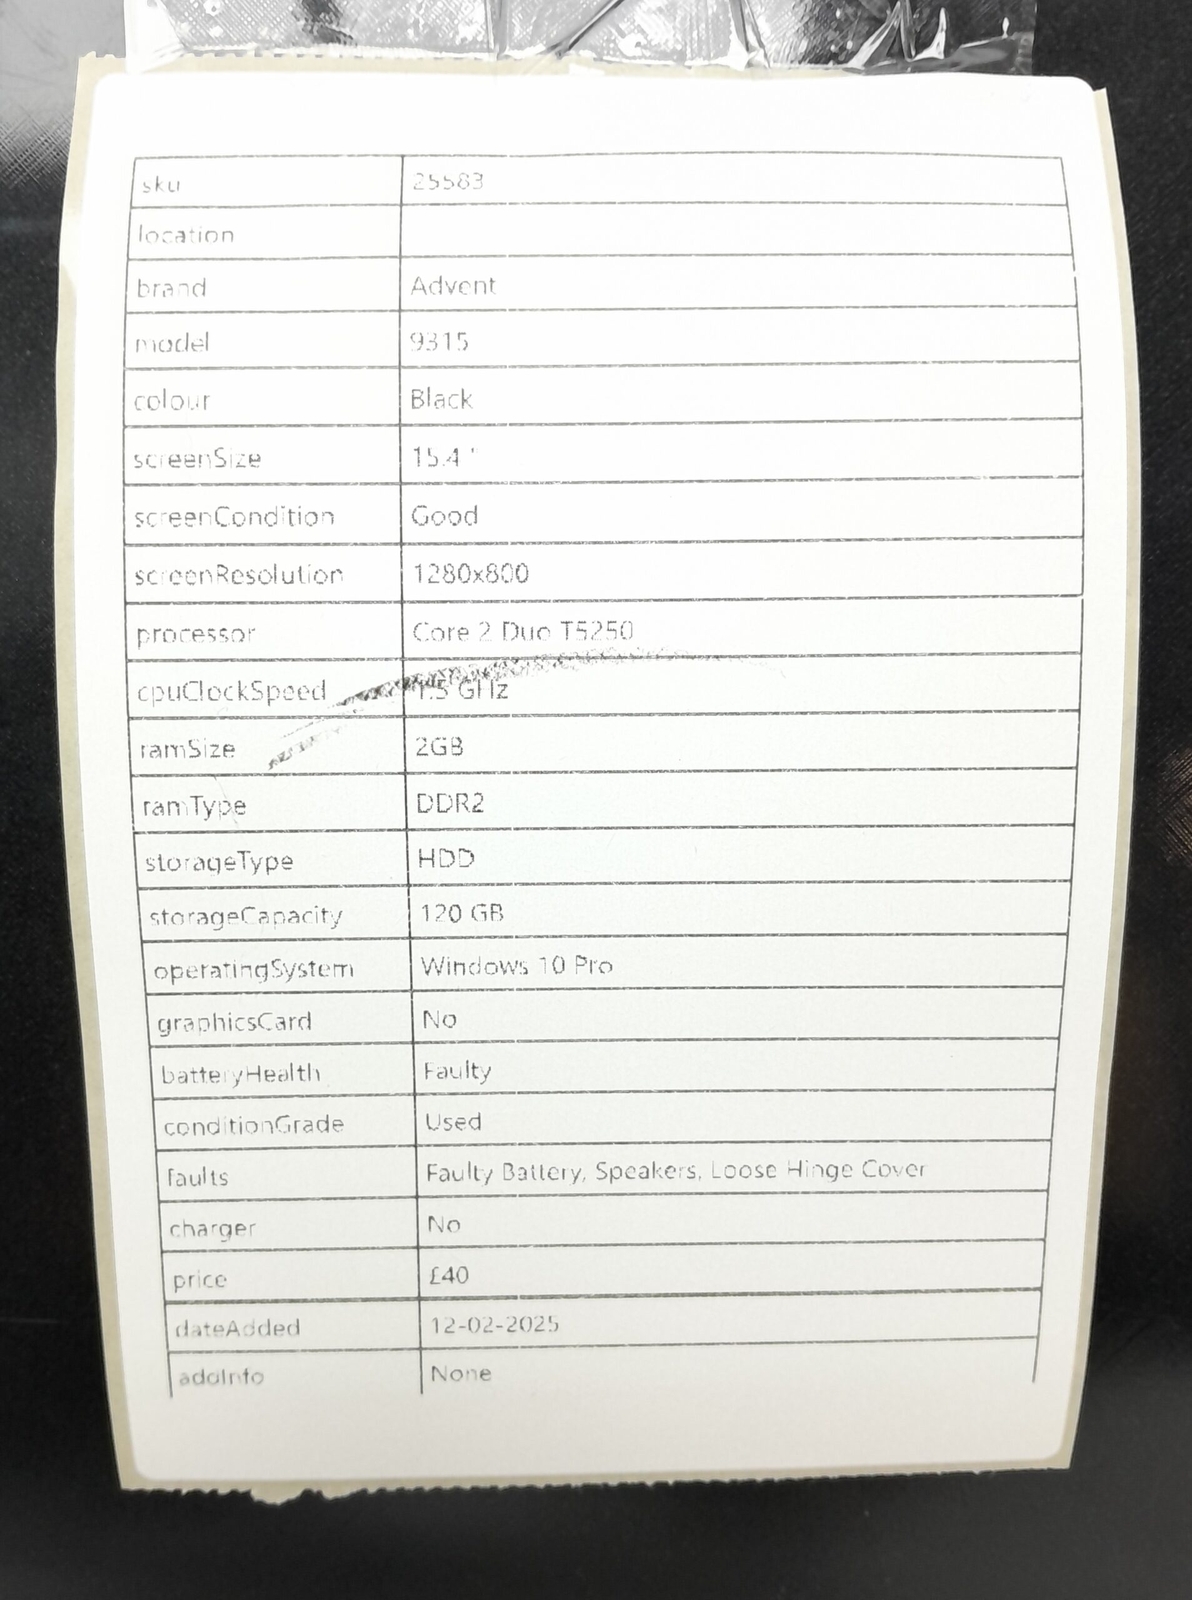 sku 25583
location
brand Advent
model 9315
colour Black
screenSize 15.4 "
screenCondition Good
screenResolution 1280x800
processor Core 2 Duo T5250
cpuClockSpeed 1.5 GHz
ramSize 2GB
ramType DDR2
storageType HDD
storageCapacity 120 GB
operatingSystem Windows 10 Pro
graphicsCard No
batteryHealth Faulty
conditionGrade Used
faults Faulty Battery, Speakers, Loose Hinge Cover
charger No
price £40
dateAdded 12-02-2025
addInfo None